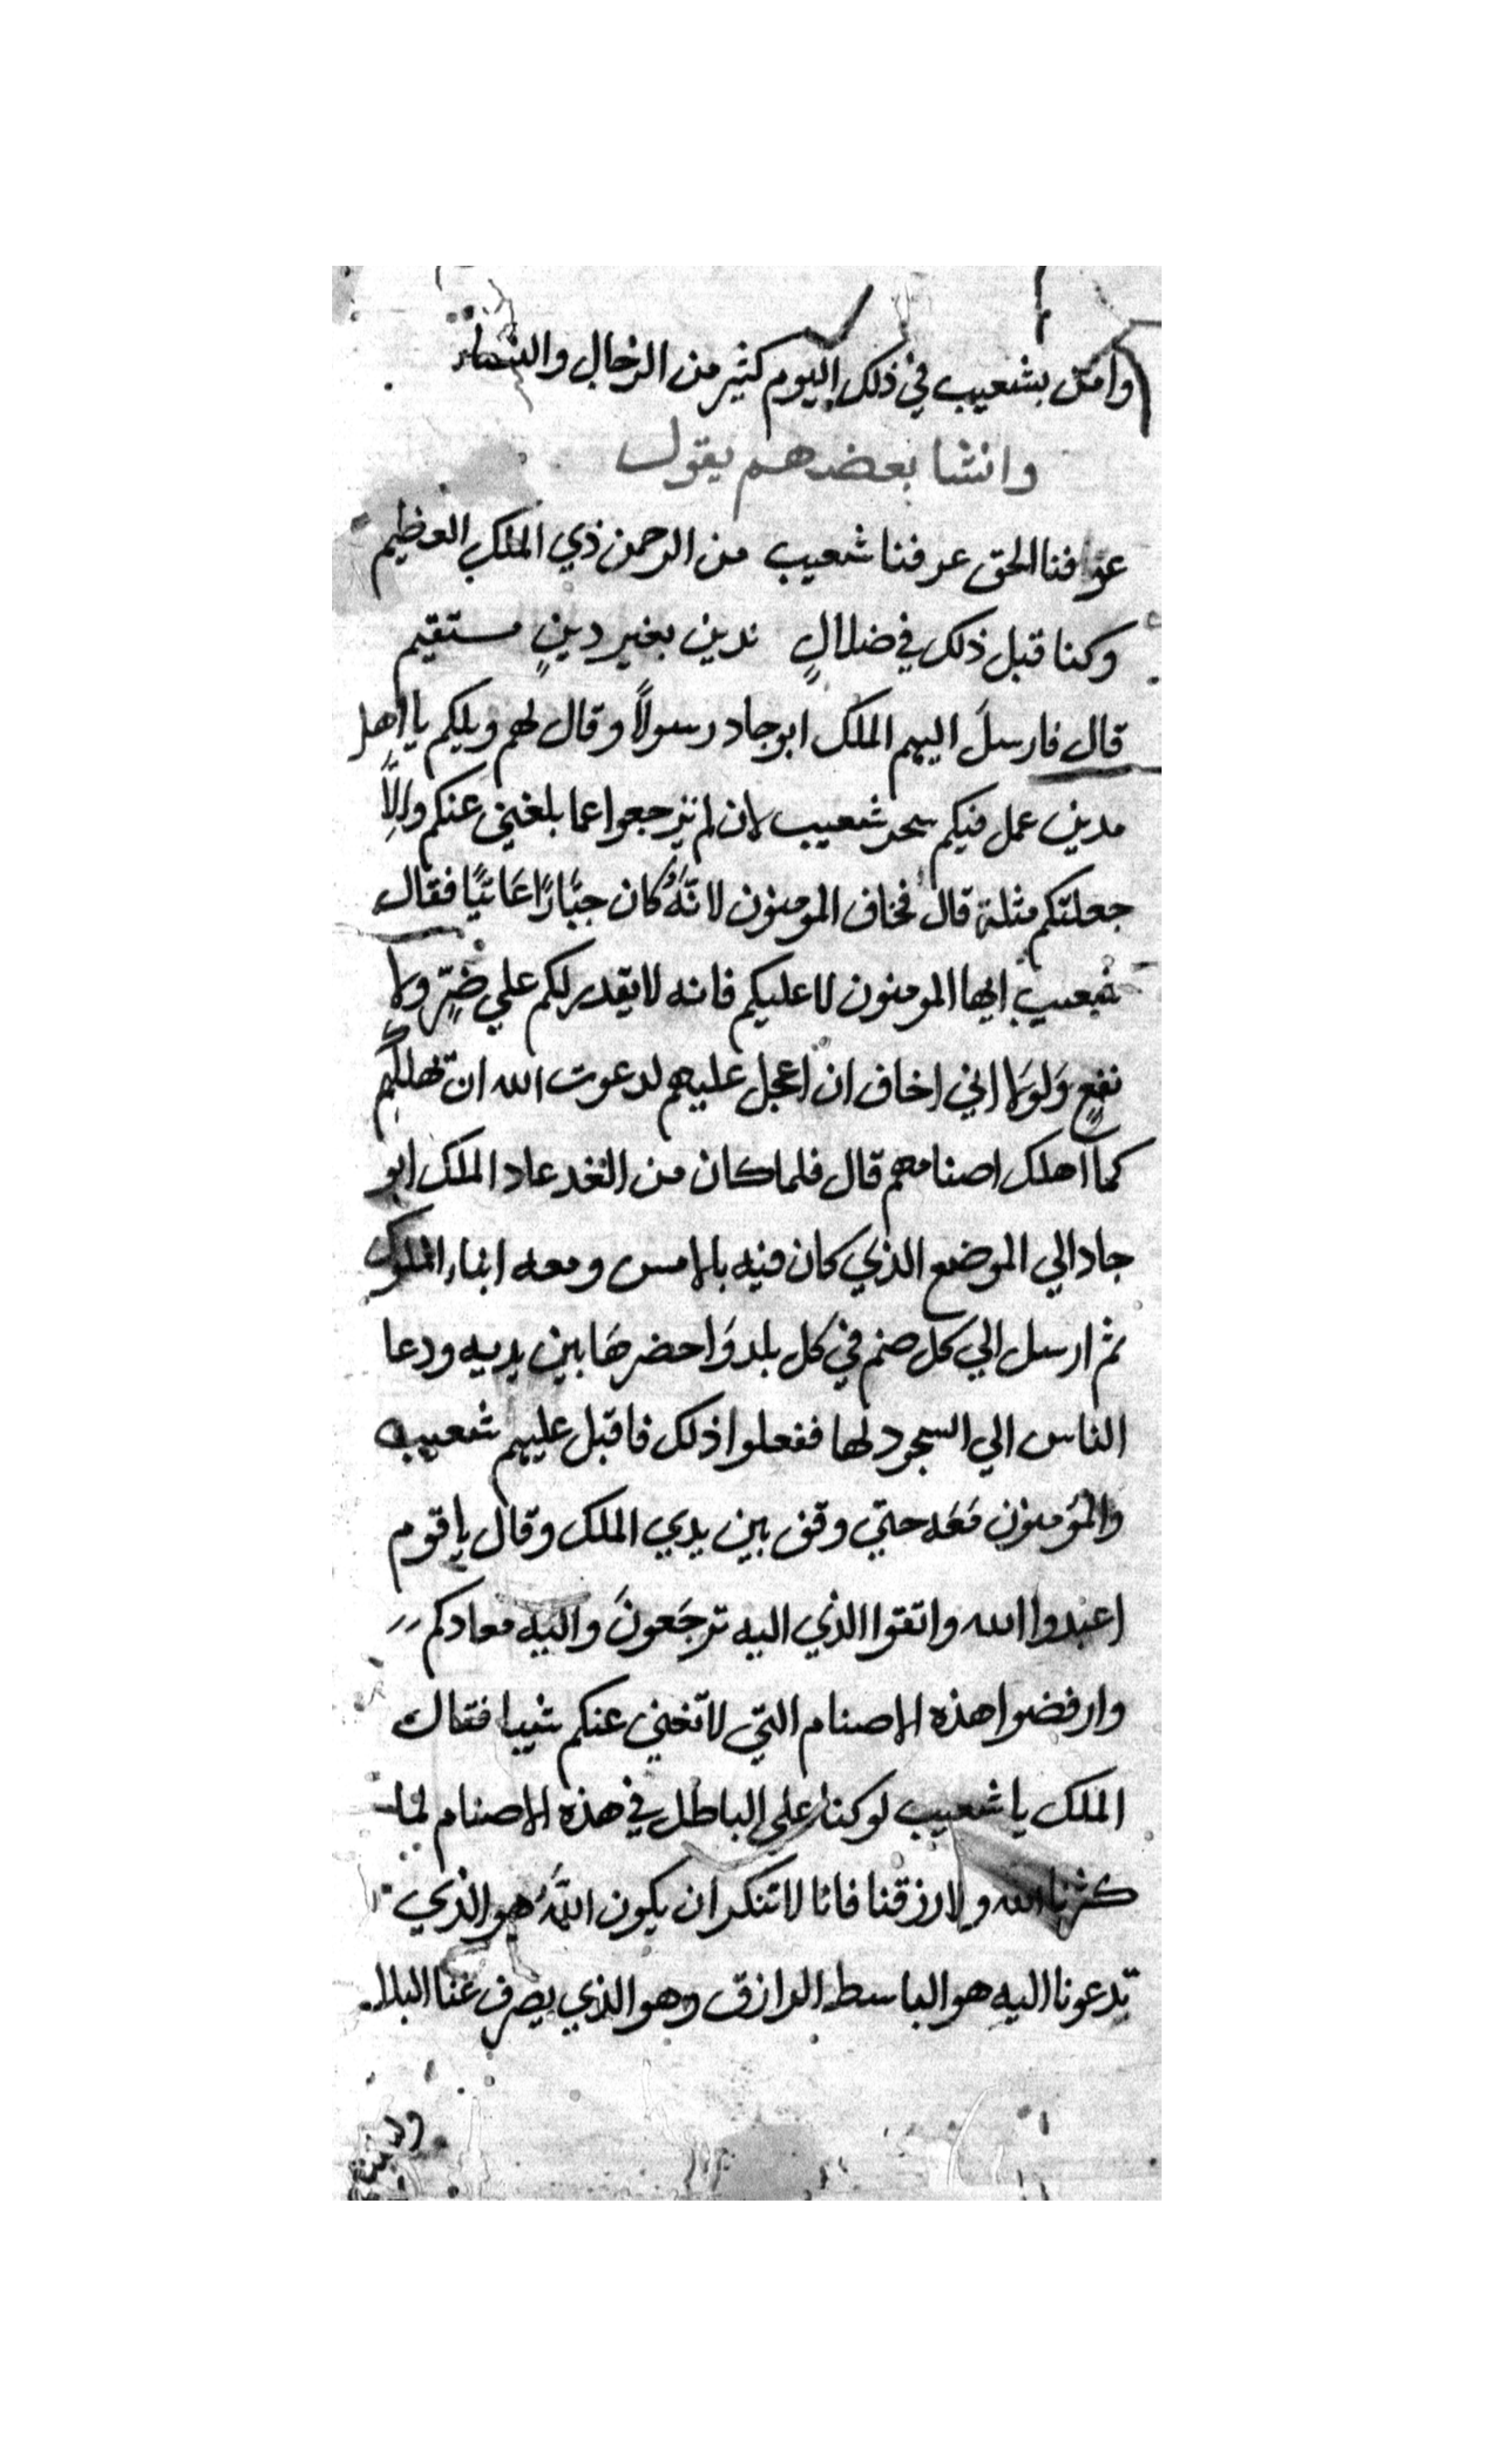 وامن بشعيب في ذلك اليوم كثير من الرجال والنساء
وانشا بعضهم يقول
عرفنا الحق عرفنا شعيب من الرحمن ذي الملك العظيم
وكنا قبل ذلك في ضلالٍ ندين بغير دينٍ مستقيم
قال فارسلَ اليهم الملك ابوجاد رسولاً وقال لهم ويلكم يا اهل
مدين عمل فيكم سحر شعيب لان لم ترجعوا عما بلغني عنكم والاَّ
جعلتكم مثلة قال فخاف المومنون لانَّهُ كان جبَّارًا عَاتيًا فقال
شعيب ايها المومنون لا عليكم فانه لا يقدر لكم علي ضرٍّ ولا
نفعٍ وَلولَا اني اخاف ان اعجل عليهم لدعوت الله ان يهلكهم
كما اهلك اصنامهم قال فلما كان من الغد عاد الملك ابو
جاد الي الموضع الذي كان فيه بالامس ومعه ابناء الملوك
ثم ارسل الي كل صنم في كل بلد وَاحضرهَا بين يديه ودعا
الناس الي السجود لها ففعلوا ذلك فاقبل عليهم شعيب
والمؤمنون مَعَه حتي وقف بين يدي الملك وقال يا قوم
اعبدوا الله واتقوا الذي اليه ترجَعونَ واليه معادكم
وارفضوا هذه الاصنام التي لا تغني عنكم شيا فقال
الملك يا شعيب لو كنا علي الباطل في هذه الاصنام لما
كثرنا الله ولا رزقنا فانا لا ننكر ان يكون اللَّهُ هو الذي
تدعونا اليه هو الباسط الرازق وهو الذي يصرف عنا البلاء